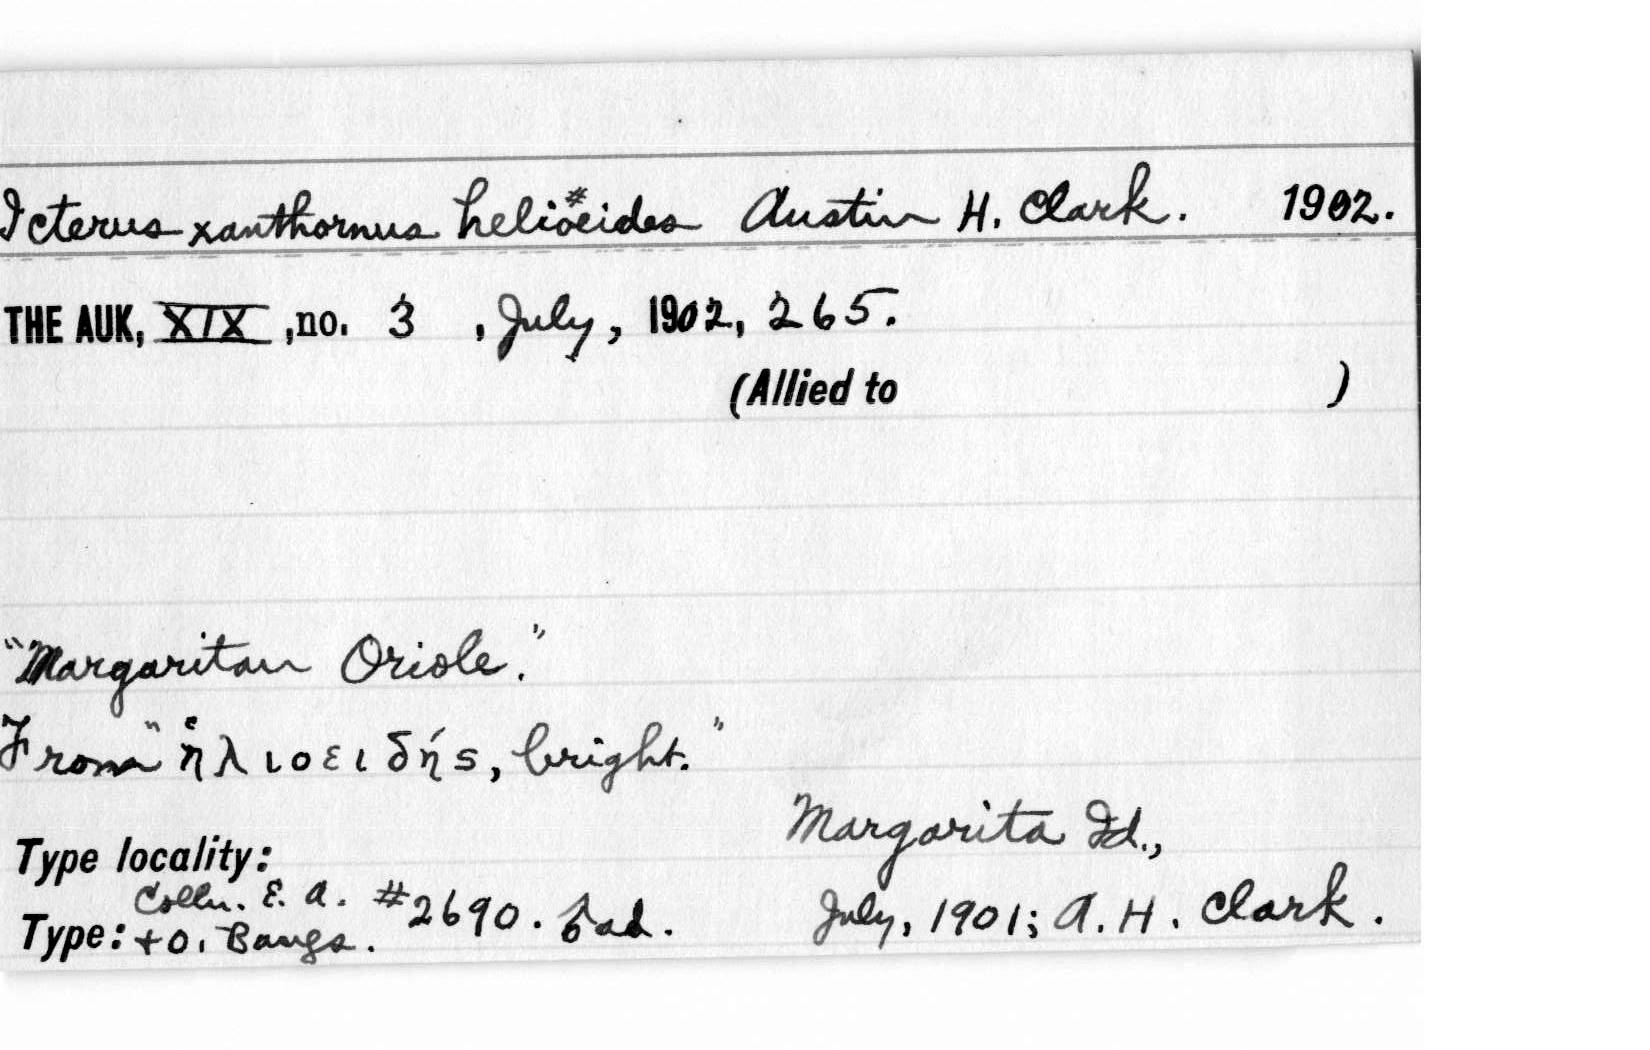 Icterus xanthornus helioeides Austin H. Clark. 1902.
#
THE AUK, XIX, no. 3, July, 1902, 265.
(Allied to )
"Margaritan Oriole."
From "ἡλιοειδής, bright."
Margarita Id.,
Type locality:
Colln. E. A. #2690. ♂ ad. July, 1901; A. H. Clark.
Type: + O. Bangs.